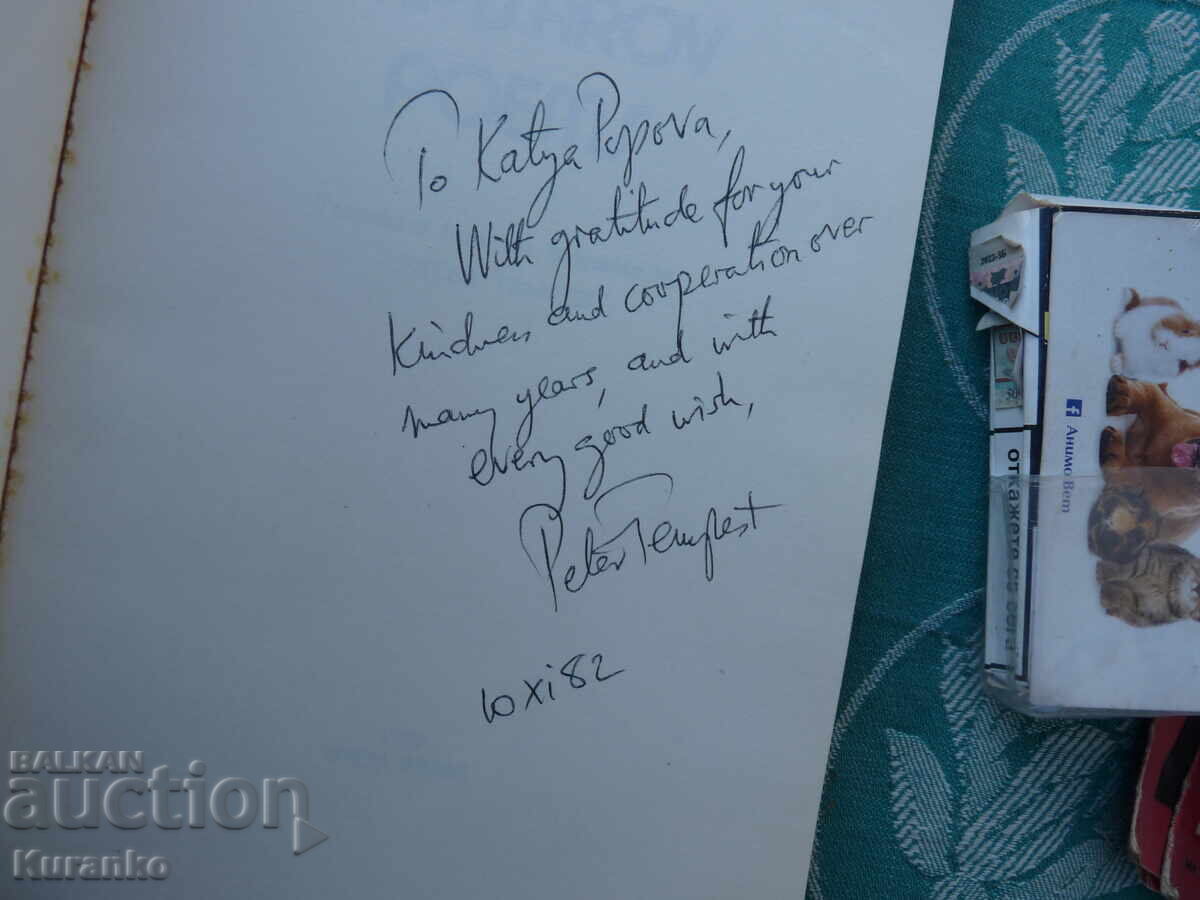 To Katya Popova,
With gratitude for your
kindness and cooperation over
many years, and with
every good wish,
Peter Tempest
10 xi 82
откажете се сега
Анимо Вет
BALKAN
auction
Kuranko